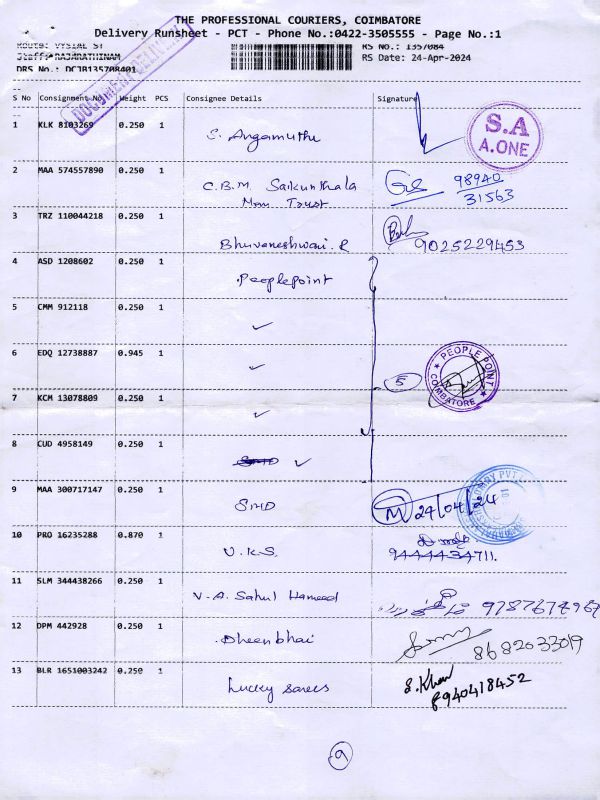 THE PROFESSIONAL COURIERS, COIMBATORE
Delivery Runsheet - PCT - Phone No.:0422-3505555 - Page No.:1
Route: VYSIAL ST RS No.: 1357084
Staff: RAJARATHINAM RS Date: 24-Apr-2024
DRS No.: DCJB135708401
S No Consignment No Weight PCS Consignee Details Signature
1 KLK 8103269 0.250 1 S. Angamuthu S.A A.ONE
2 MAA 574557890 0.250 1 C.B.M. Saikunthala 98940
Trust 31563
3 TRZ 110044218 0.250 1 Bhuvaneshwari. R 9025229453
4 ASD 1208602 0.250 1 Peoplepoint
5 CMM 912118 0.250 1 ✓
6 EDQ 12738887 0.945 1 ✓ 5 PEOPLE POINT COIMBATORE
7 KCM 13078809 0.250 1 ✓
8 CUD 4958149 0.250 1 SMD ✓
9 MAA 300717147 0.250 1 SMD M 24/04/24
10 PRO 16235288 0.870 1 V.K.S. 9444434711.
11 SLM 344438266 0.250 1 V.A. Sahul Hameed
12 DPM 442928 0.250 1 Dheenbhai 8682033019
13 BLR 1651003242 0.250 1 Lucky sarees S.Khan
8940418452
9